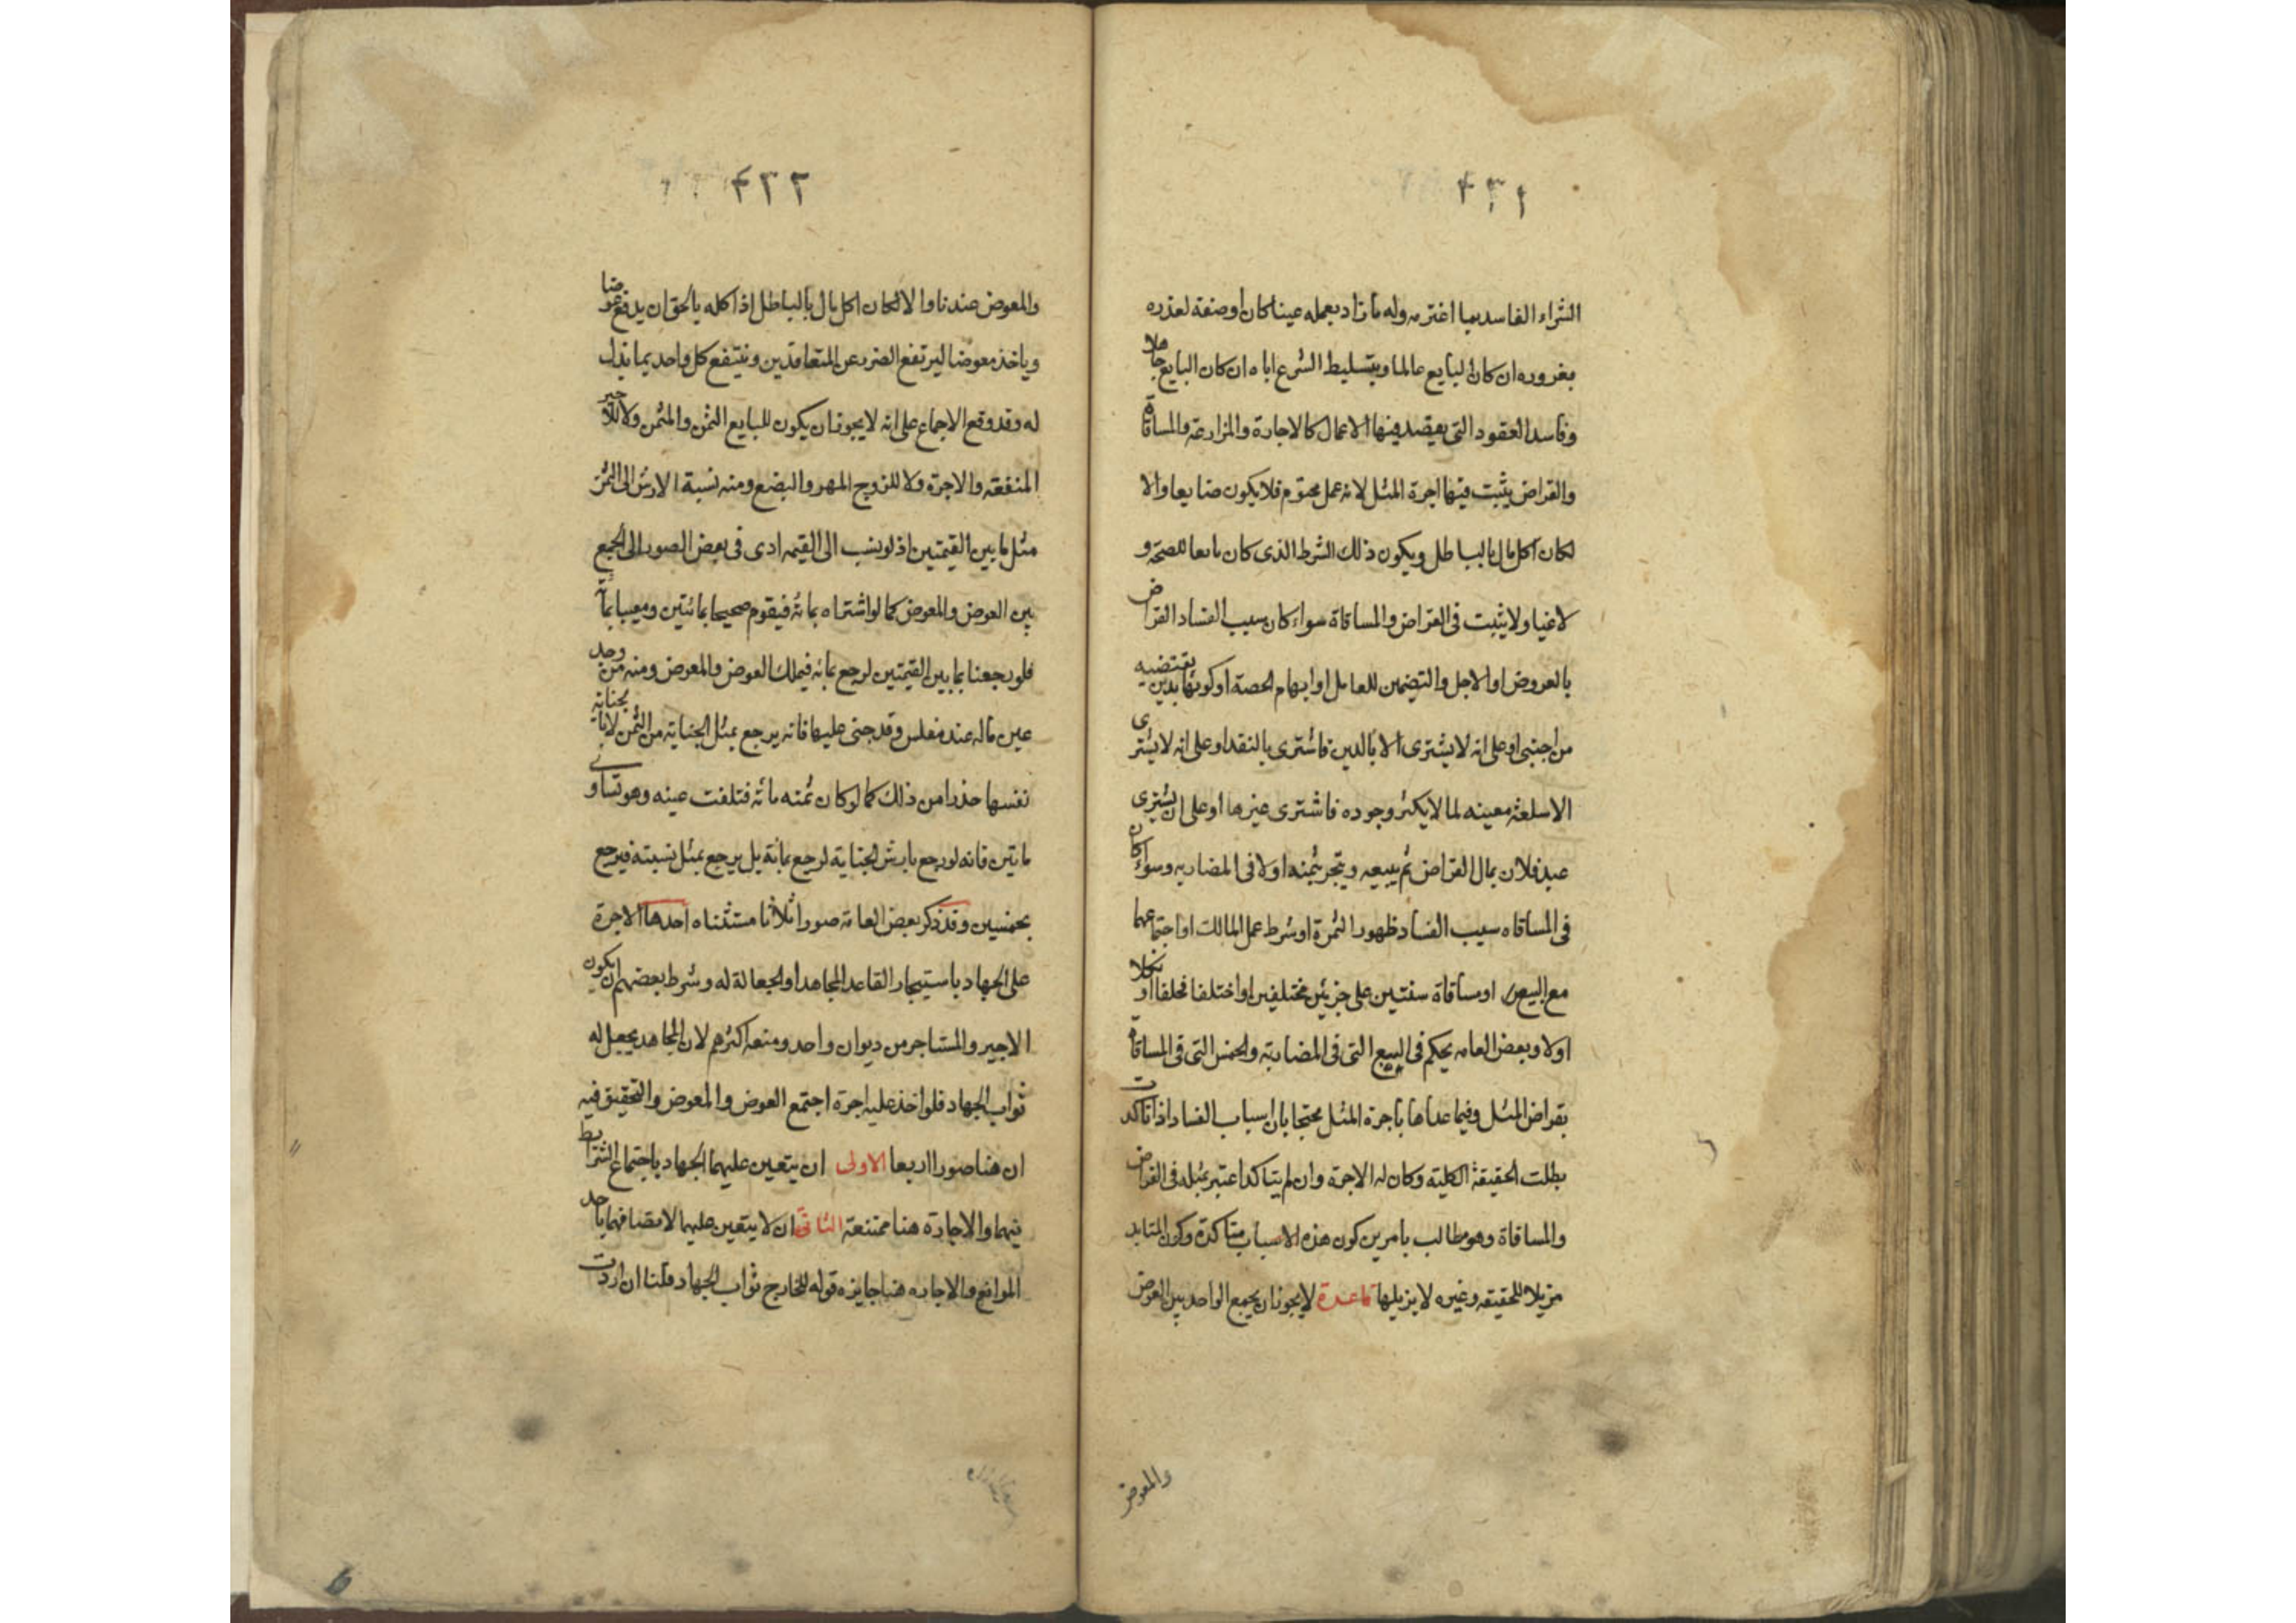 ٤٣١
الشراء الفاسد بما اغترمه وله ما زاد بعمله عينا كان أو صنعة لعذره
بغروره ان كان البايع عالما وبتسليط الشرع اياه ان كان البايع جاهلا
وفاسد العقود التى يقصد فيها الاعمال كالاجارة والمزارعة والمساقاة
والقراض يثبت فيها اجرة المثل لانه عمل محترم فلا يكون ضايعا والا
لكان اكل مال بالباطل ويكون ذلك الشرط الذى كان مانعا للصحة و
لاغيا ولا يثبت فى القراض والمساقاة سواء كان سبب الفساد القراض
بالعروض او الاجل والتضمين للعامل او ابهام الحصة او كونها بدين يقتضيه
من اجنبى او على انه لا يشترى الا بالدين فاشترى بالنقد او على انه لا يشترى
الا سلعة معينه لما لا يكثر وجوده فاشترى غيرها او على ان يشترى
عبد فلان بمال القراض ثم يبيعه ويتجر بثمنه اولا فى المضاربه وسواء كان
فى المساقاه سبب الفساد ظهور الثمرة او شرط عمل المالك او اجتماعهما
مع البيع او مساقاة سنتين على جزئين مختلفين او اختلفا فحلفا او نكلا
اولا وبعض العامه يحكم فى البيع التى فى المضاربة والخمس التى فى المساقاة
بقراض المثل وفيما عداها باجرة المثل محتجا بان اسباب الفساد اذا تاكدت
بطلت الحقيقة الكلية وكان له الاجرة وان لم يتاكد اعتبر بمثله فى القراض
والمساقاة وهو مطالب بامرين كون هذه الاسباب متاكدة وكون المتابد
مزيلا للحقيقه وغيره لا يزيلها قاعدة لا يجوز ان يجمع الواحد بين العوض
والمعوض
٤٣٢
والمعوض عندنا والا لكان اكل مال بالباطل اذ اكله بالحق ان يدفع عوضا
وياخذ معوضا ليرتفع الضرر عن المتعاقدين وينتفع كل واحد بما بذل
له وقد وقع الاجماع على انه لا يجوز ان يكون للبايع الثمن والمثمن ولا للاجير
المنفعة والاجرة ولا للزوج المهر والبضع ومنه نسبة الارش الى الثمن
مثل ما بين القيمتين اذ لو نسب الى القيمه ادى فى بعض الصور الى الجمع
بين العوض والمعوض كما لو اشتراه بمائة فيقوم صحيحا بمائتين ومعيبا بمائة
فلو رجعنا بما بين القيمتين لرجع بمائه فيملك العوض والمعوض ومنه من وجد
عين ماله عند مفلس وقد جنى عليها فانه يرجع بمثل الجناية من الثمن لا بالجناية
نفسها حذرا من ذلك كما لو كان ثمنه مائة فتلفت عينه وهو تساوى
ماتين فانه لو رجع بارش الجناية لرجع بمائة بل يرجع بمثل نسبته فيرجع
بخمسين وقد ذكر بعض العامة صورا ثلاثا مستثناه احدها الاجرة
على الجهاد باستيجار القاعد المجاهد او الجعالة له وشرط بعضهم ان يكون
الاجير والمستاجر من ديوان واحد ومنعه اكثرهم لان المجاهد يحصل له
ثواب الجهاد فلو اخذ عليه اجرة اجتمع العوض والمعوض والتحقيق فيه
ان هنا صورا اربعا الاولى ان يتعين عليهما الجهاد باجتماع الشرايط
فيهما والاجارة هنا ممتنعة الثانى ان لا يتعين عليهما لاتصافهما باحد
الموانع والاجاره هنا جايزه قوله للخارج ثواب الجهاد قلنا ان اردت